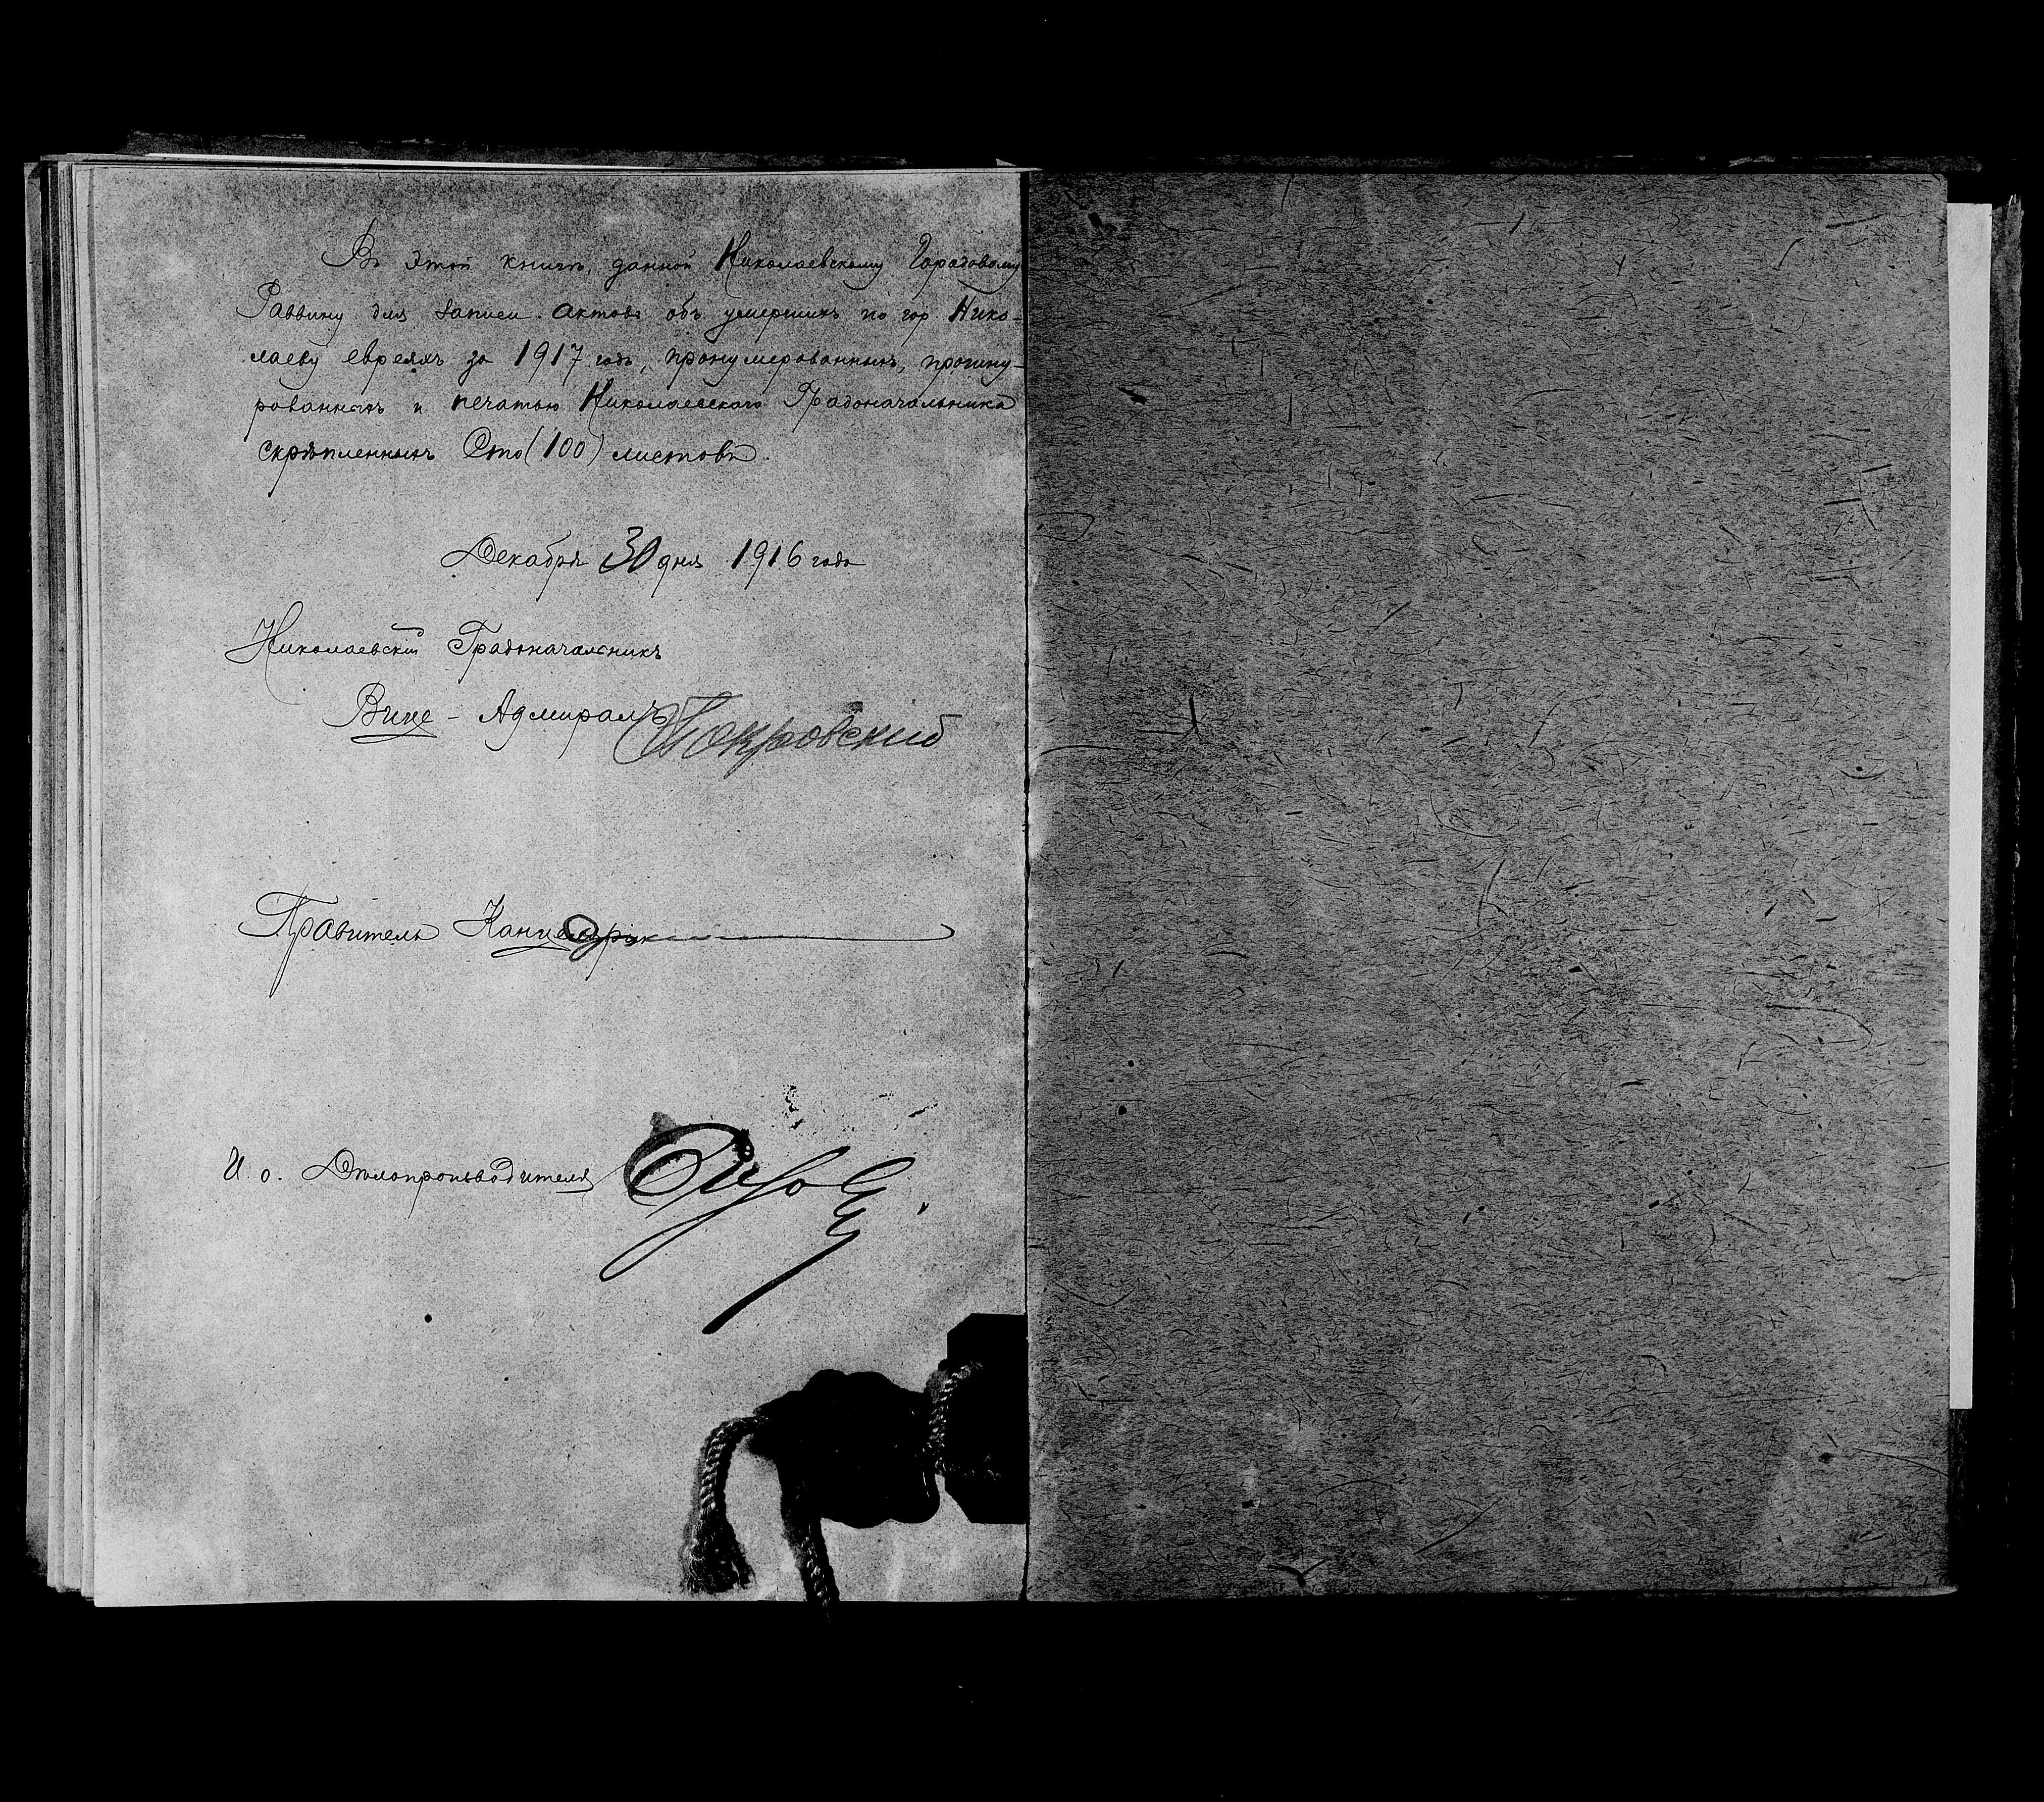 Въ этой книгѣ, данной Николаевскому Городовому
Раввину для записи актовъ объ умершихъ по гор Нико-
лаеву евреяхъ за 1917 годъ, пронумерованныхъ, прошну-
рованныхъ и печатью Николаевскаго Градоначальника
скрѣпленныхъ Сто (100) листовъ.
Декабря 30 дня 1916 года
Николаевскій Градоначальникъ
Вице-Адмиралъ Покровский
Правитель Канцеляріи
И. о. Дѣлопроизводителя